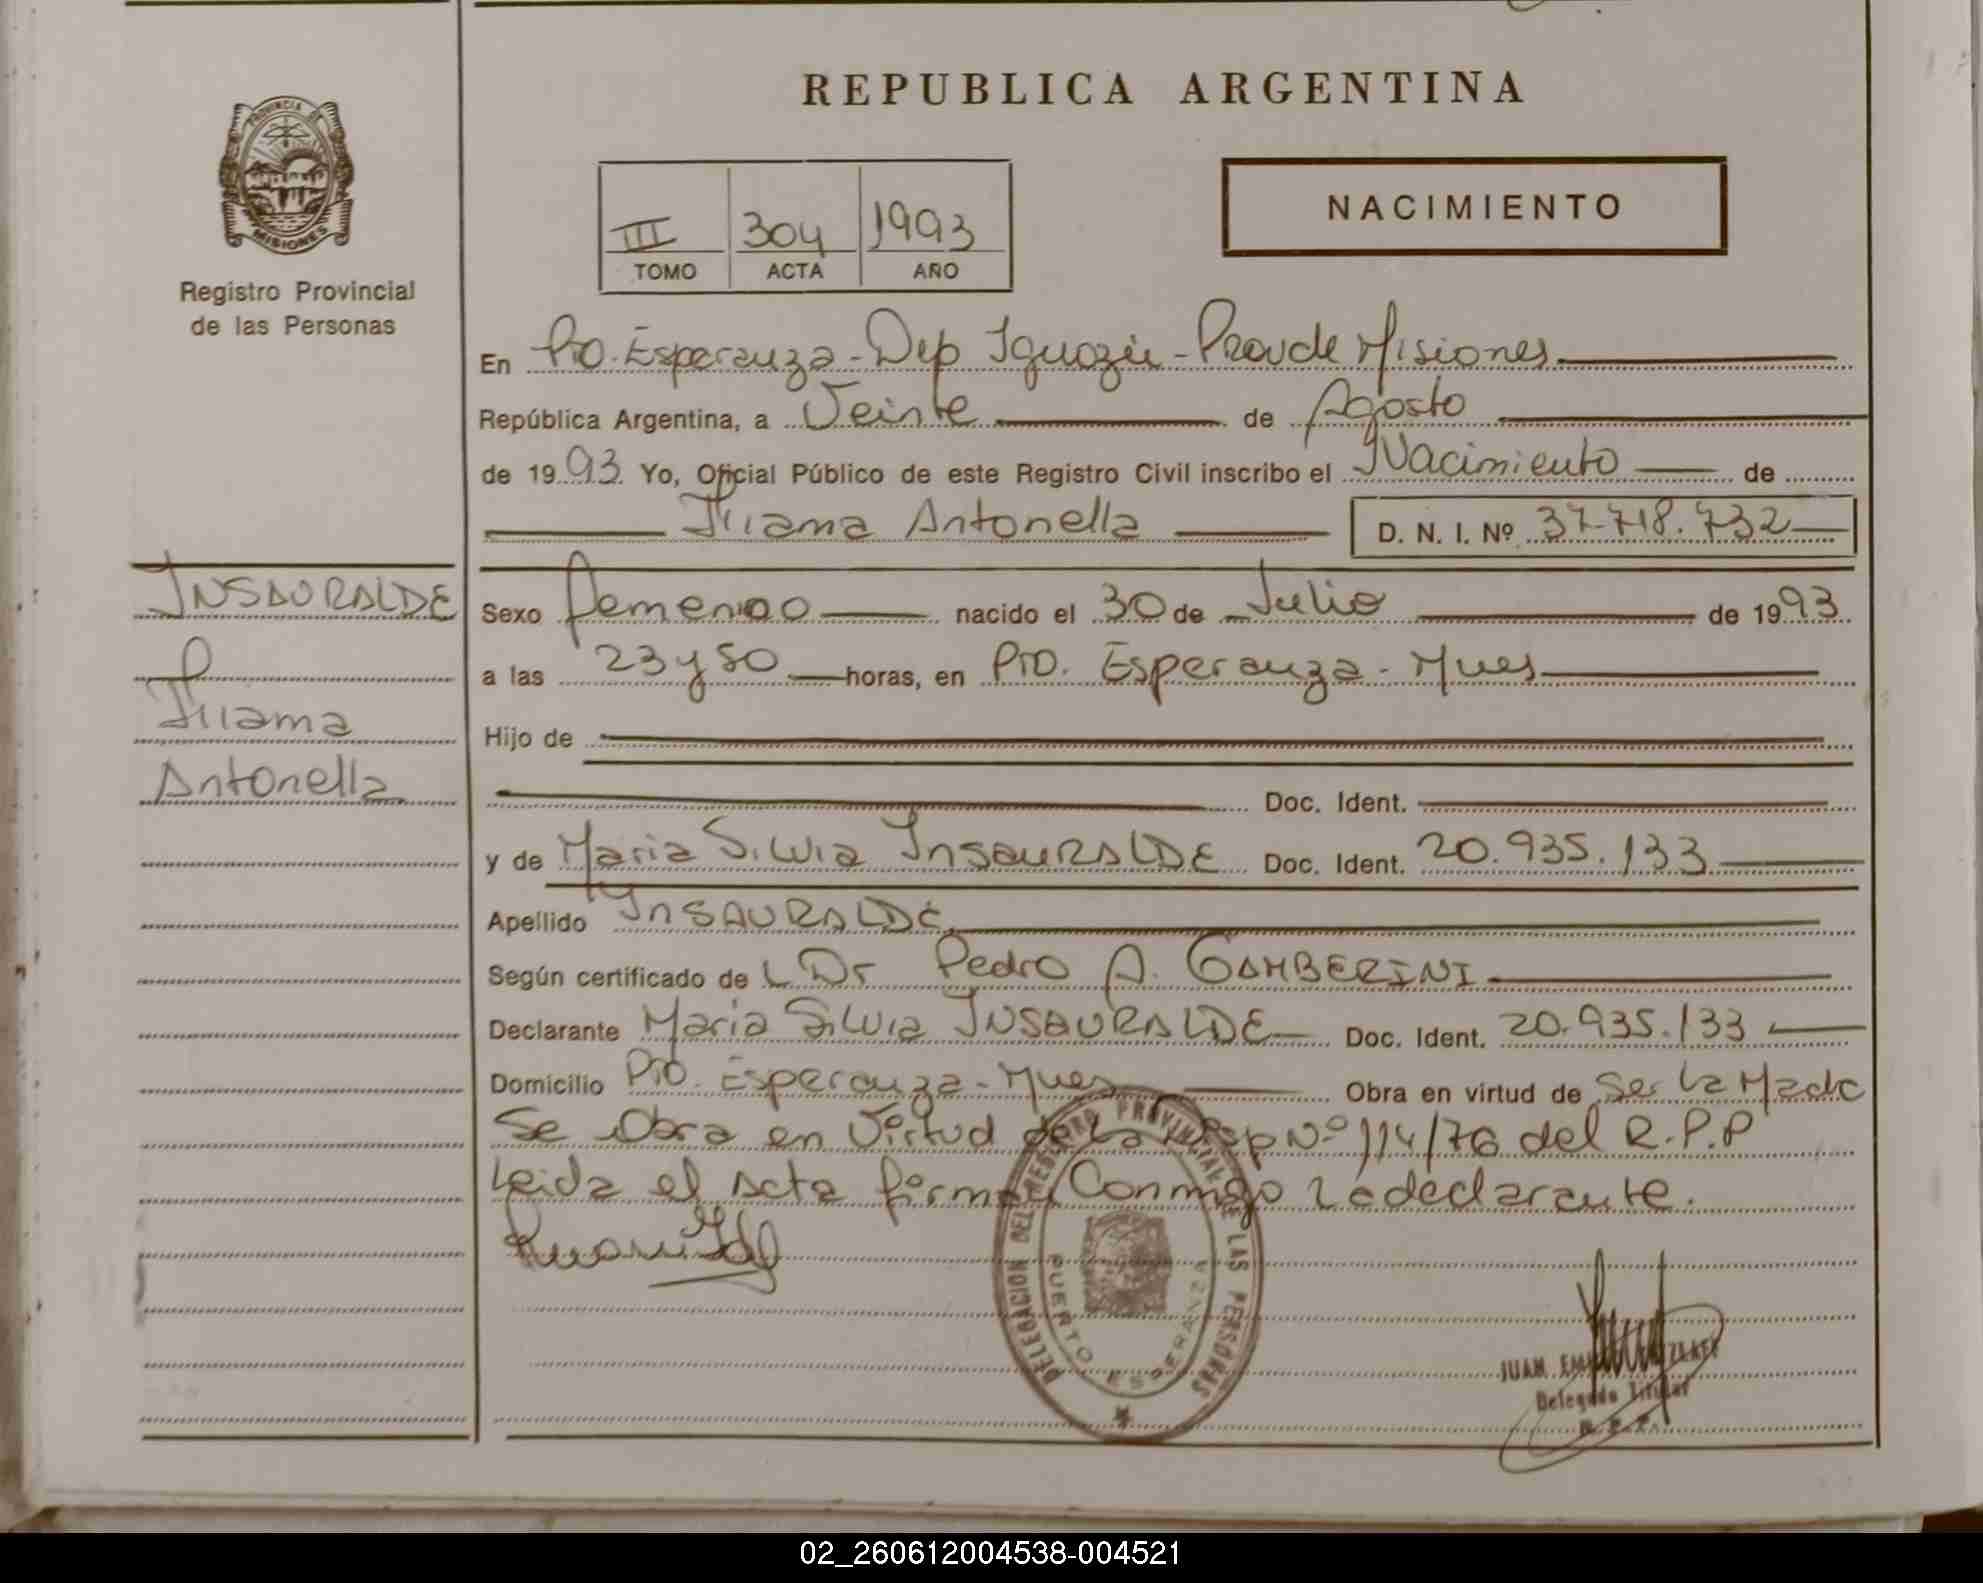 REPUBLICA ARGENTINA
PROVINCIA DE
MISIONES
Registro Provincial
de las Personas
III 304 1993
TOMO ACTA AÑO
NACIMIENTO
En Pto. Esperanza - Dep Iguazú - Prov de Misiones
República Argentina, a Veinte de Agosto
de 1993 Yo, Oficial Público de este Registro Civil inscribo el Nacimiento de
Antonella D. N. I. Nº 37.718.732
INSAURALDE
Antonella
Sexo femenino nacido el 30 de Julio de 1993
a las 23 y 50 horas, en Pto. Esperanza - Mnes
Hijo de
Doc. Ident.
y de Maria Silvia INSAURALDE Doc. Ident. 20.935.133
Apellido INSAURALDE
Según certificado de Dr Pedro A. GAMBERINI
Declarante Maria Silvia INSAURALDE Doc. Ident. 20.935.133
Domicilio Pto. Esperanza - Mnes Obra en virtud de Ser la Madre
Se Obra en Virtud de la Disp Nº 114/76 del R.P.P
Leida el acta firma Conmigo la declarante.
DELEGACION DEL REGISTRO PROVINCIAL DE LAS PERSONAS
PUERTO ESPERANZA
JUAN
Delegado Titular
R. P. P.
02_260612004538-004521